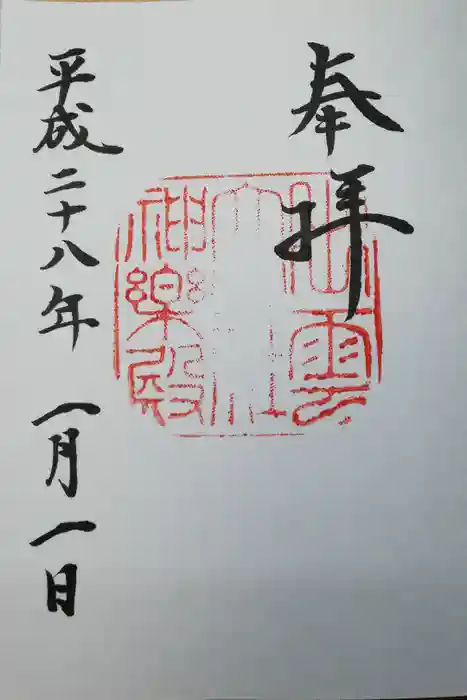 奉拝
出雲
大社
神樂殿
平成二十八年 一月一日